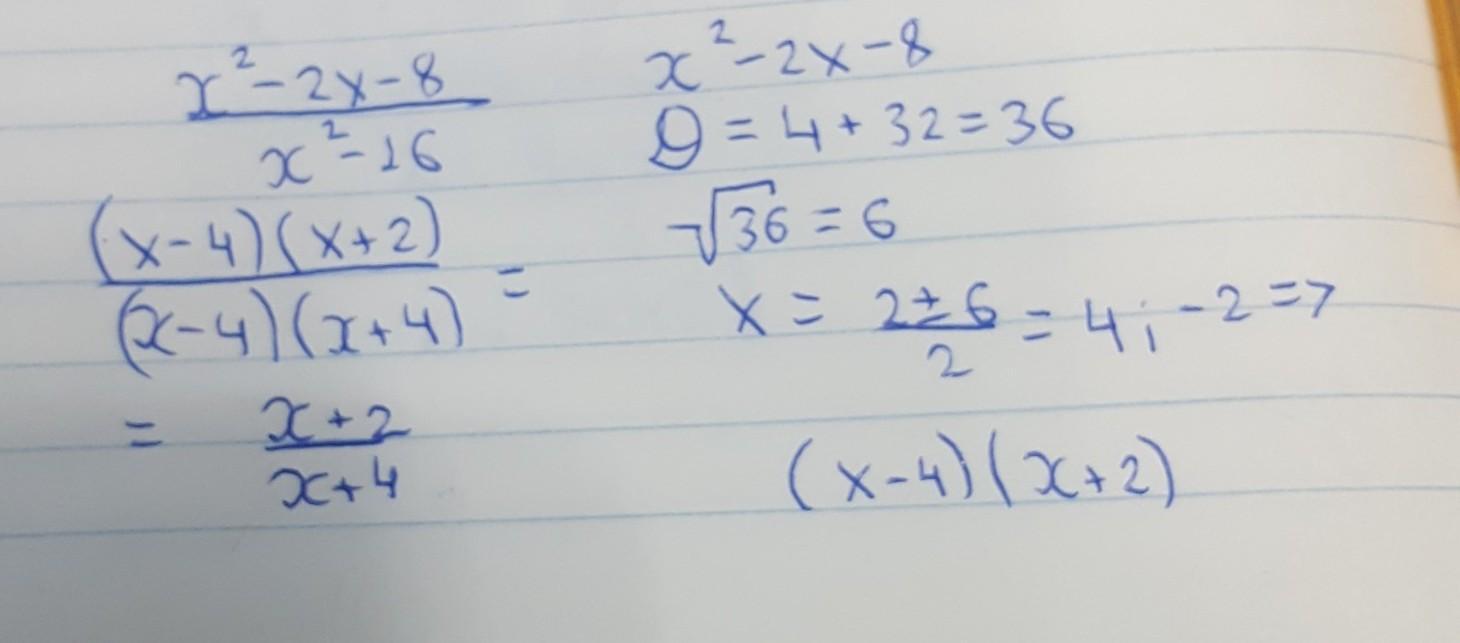 x² - 2x - 8
x² - 16
(x - 4)(x + 2)
(x - 4)(x + 4) =
= x + 2
x + 4
x² - 2x - 8
D = 4 + 32 = 36
√36 = 6
x = 2 ± 6 / 2 = 4; -2 =>
(x - 4)(x + 2)